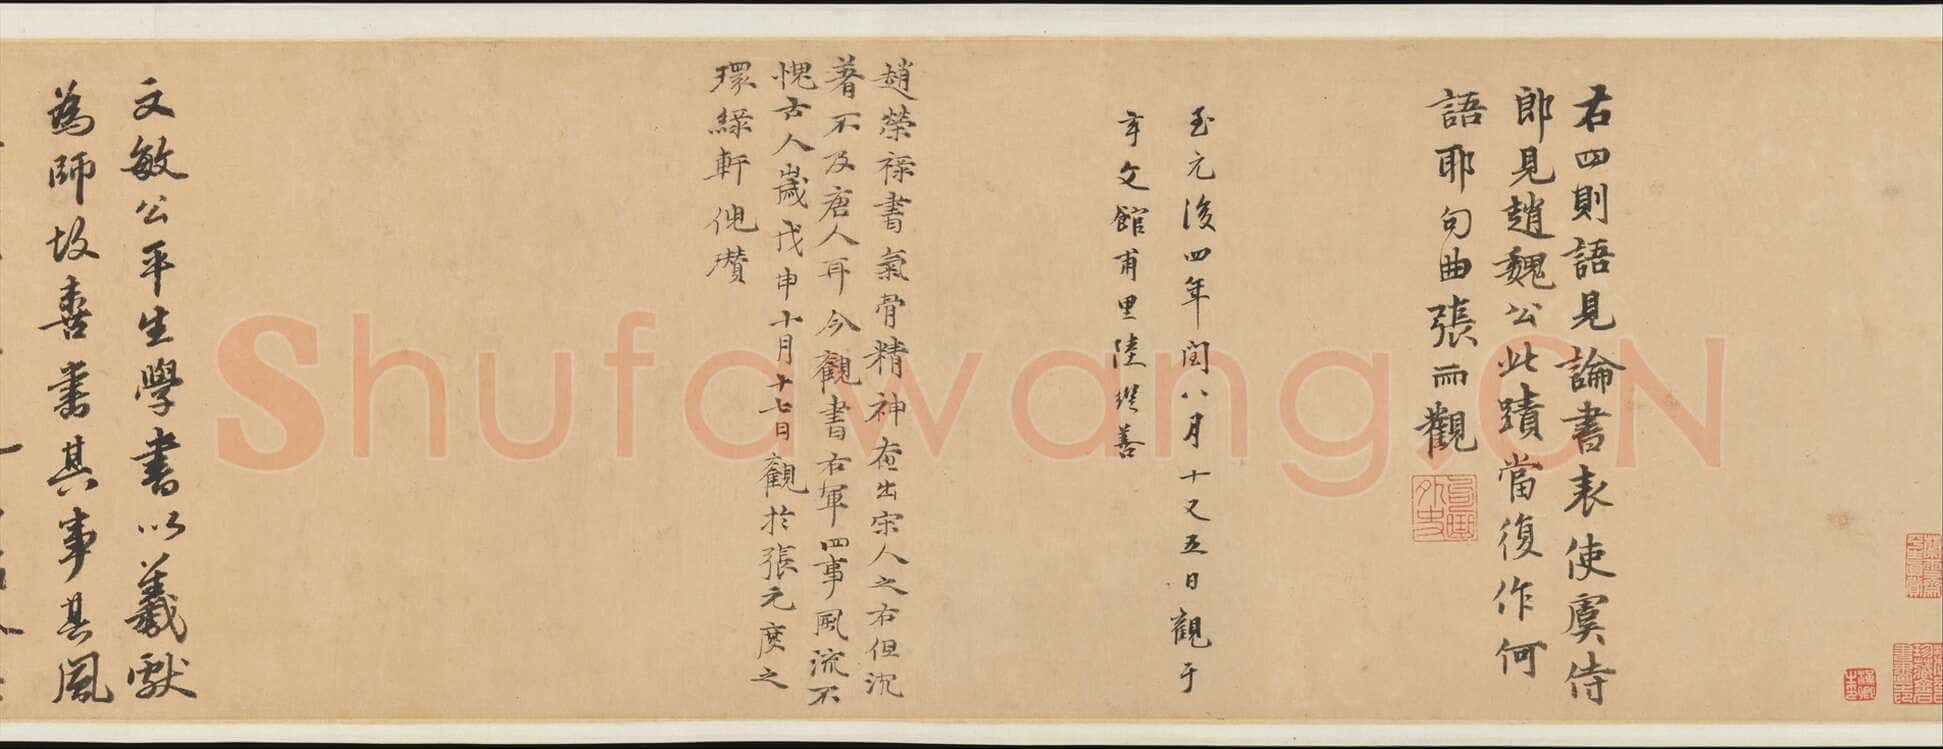 右四則語見論書表使虞侍
郎見趙魏公此蹟當復作何
語耶句曲張雨觀
至元後四年閏八月十又五日觀于
宇文館甫里陸繼善
趙榮祿書氣骨精神在出宋人之右但沉
著不及唐人耳今觀書右軍四事風流不
愧古人歲戊申十月十七日觀於張元度之
環綠軒倪瓚
文敏公平生學書以羲獻
為師故喜書其事其風
Shufawang.CN